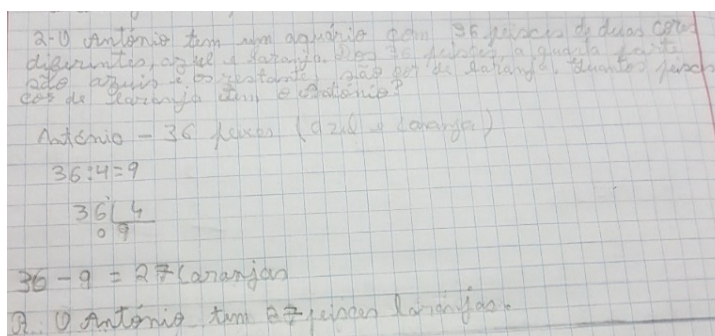 2-O António tem um aquário com 36 peixes de duas cores
diferentes, azul e laranja. Dos 36 peixes a quarta parte
são azuis e os restantes são cor de laranja. Quantos peixes
cor de laranja tem o António?
António - 36 peixes (azul e laranja)
36:4=9
36 4
0 9
36 - 9 = 27 laranjas
R: O António tem 27 peixes laranjas.